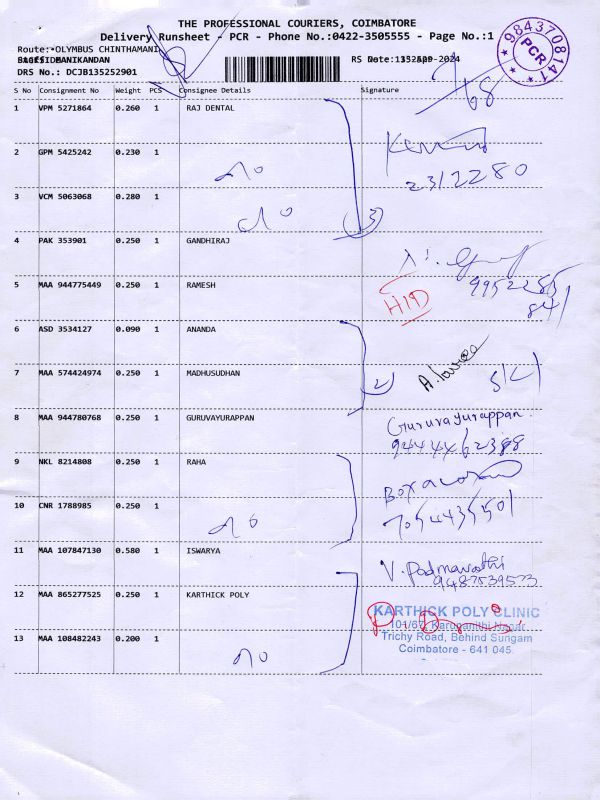 THE PROFESSIONAL COURIERS, COIMBATORE
Delivery Runsheet - PCR - Phone No.:0422-3505555 - Page No.:1
Route: OLYMBUS CHINTHAMANI
MANIKANDAN
RS Date: -2024
DRS No.: DCJB135252901
9843708141
PCR
S No Consignment No Weight PCS Consignee Details Signature
1 VPM 5271864 0.260 1 RAJ DENTAL
2 GPM 5425242 0.230 1
2312280
3 VCM 5063068 0.280 1
(3)
4 PAK 353901 0.250 1 GANDHIRAJ
9952285
841
5 MAA 944775449 0.250 1 RAMESH
HID
6 ASD 3534127 0.090 1 ANANDA
7 MAA 574424974 0.250 1 MADHUSUDHAN
8 MAA 944780768 0.250 1 GURUVAYURAPPAN Guruvayurappan
9444462388
9 NKL 8214808 0.250 1 RAHA
10 CNR 1788985 0.250 1
7054435501
11 MAA 107847130 0.580 1 ISWARYA V. Padmavathi
9487539573
12 MAA 865277525 0.250 1 KARTHICK POLY KARTHICK POLY CLINIC
101/67, Karunanithi Nagar
13 MAA 108482243 0.200 1 Trichy Road, Behind Sungam
Coimbatore - 641 045.